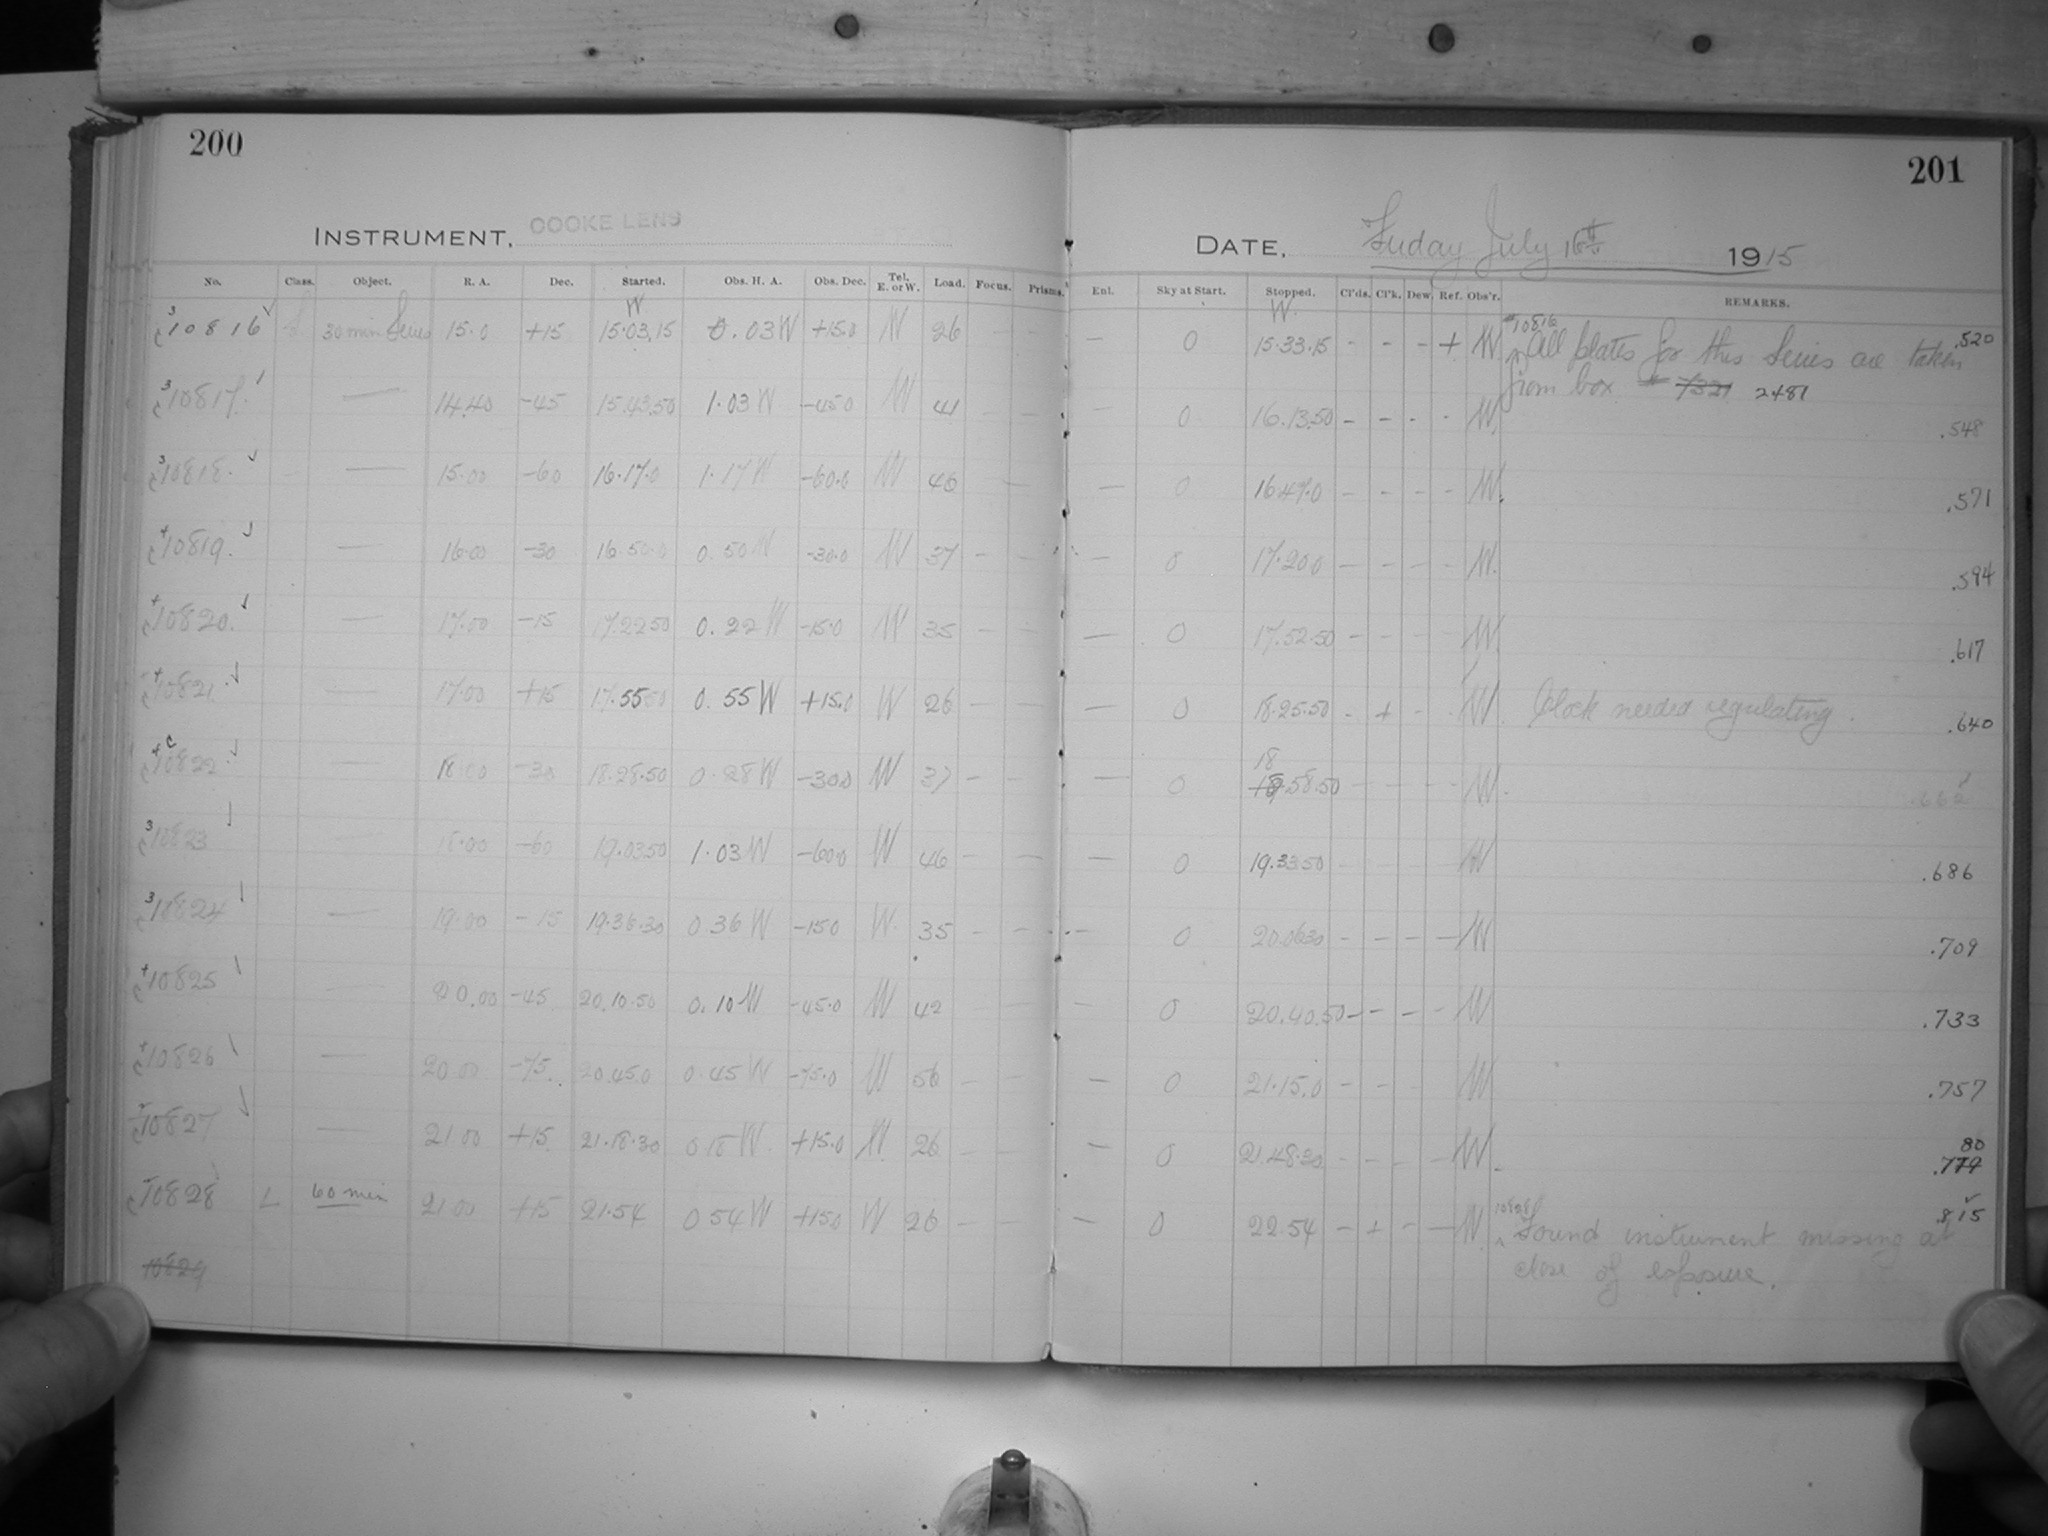 200
201
INSTRUMENT, COOKE LENS
DATE, Friday July 16th 1915
No. Class. Object. R. A. Dec. Started. Obs. H. A. Obs. Dec. Tel. E. or W. Load. Focus. Prisms. Enl. Sky at Start. Stopped. Cl'ds. Cl'k. Dew. Ref. Obs'r. REMARKS.
W W
3 10816 ✓ 30 min Series 15.0 +15 15.03.15 0.03 W +15.0 W 26 - - - 0 15.33.15 - - - + W #10816 All plates for this Series are taken .520
from box # 7321 2481
3 10817. ✓ — 14.40 -45 15.43.50 1.03 W -45.0 W 41 - - - 0 16.13.50 - - - - W. .548
3 10818. ✓ — 15.00 -60 16.17.0 1.17 W -60.0 W 46 - - 0 16.47.0 - - - - W. .571
+ 10819. ✓ — 16.00 -30 16.50.0 0.50 W -30.0 W 37 - - - 0 17.20.0 - - - - W. .594
+ 10820. ✓ — 17.00 -15 17.22.50 0.22 W -15.0 W 35 - - - 0 17.52.50 - - - - W. .617
+ 10821. ✓ — 17.00 +15 17.55.50 0.55 W +15.0 W 26 - - - 0 18.25.50 - + - - W. Clock needed regulating. .640
+ c 10822. ✓ — 18.00 -30 18.28.50 0.28 W -30.0 W 37 - - 0 18 19.58.50 - - - - W. .662
3 10823 ✓ — 18.00 -60 19.03.50 1.03 W -60.0 W 46 - - - 0 19.33.50 - - - - W .686
3 10824 ✓ — 19.00 -15 19.36.30 0.36 W -15.0 W. 35 - - - 0 20.06.30 - - - - W .709
+ 10825 ✓ — 20.00 -45 20.10.50 0.10 W -45.0 W 42 - - 0 20.40.50 - - - - W .733
+ 10826 ✓ — 20.00 -75. 20.45.0 0.45 W -75.0 W 56 - - - 0 21.15.0 - - - W .757
10827 ✓ — 21.00 +15 21.18.30 0.18 W. +15.0 W. 26 - - - 0 21.48.30 - - - - W. 80 .779
10828 L 60 min 21.00 +15 21.54 0 54 W +15.0 W 26 - - - 0 22.54 - + - - W. 10828 Found instrument missing at .815
close of exposure.
10829